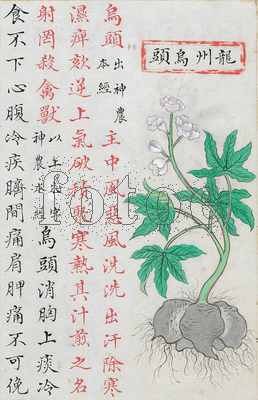 龍州烏頭
烏頭出神農本經主中風惡風洗洗出汗除寒
濕痺欬逆上氣破積聚寒熱其汁煎之名
射罔殺禽獸以上朱字神農本經烏頭消胸上痰冷
食不下心腹冷疾臍間痛肩胛痛不可俛